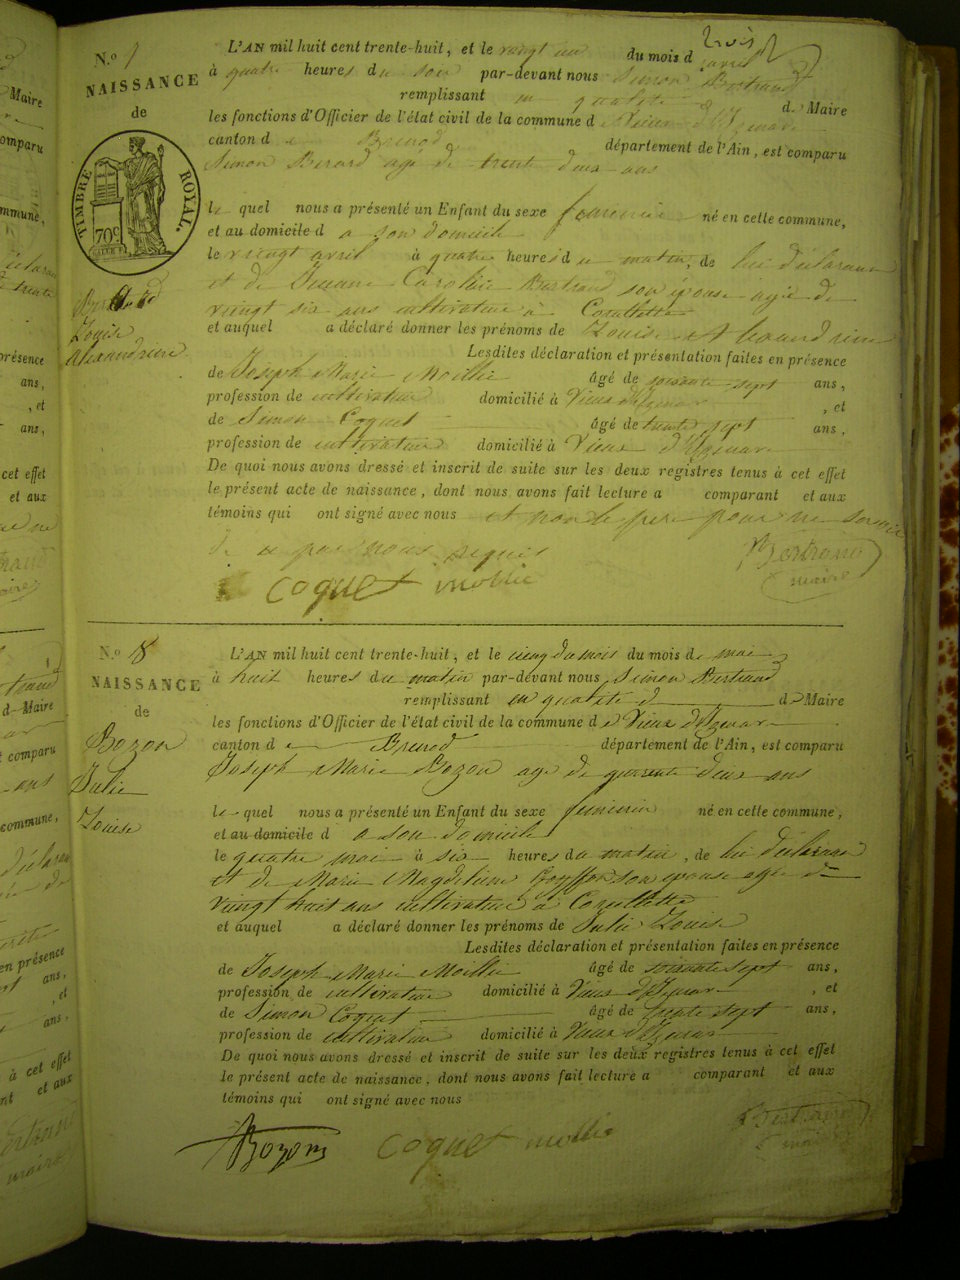 N.o 7
NAISSANCE
de
TIMBRE ROYAL.
70c
Louise
Alexandrine
L'AN mil huit cent trente-huit, et le vingt un du mois d avril
à quatre heures du soir par-devant nous Simon Bertrand
remplissant en qualité d de Maire
les fonctions d'Officier de l'état civil de la commune de Vieux d'Izenave
canton de Brenod département de l'Ain, est comparu
Simon Berard age de trent deux ans
le quel nous a présenté un Enfant du sexe féminin né en cette commune,
et au domicile d a son domicile
le vingt avril à quatre heures du matin, de lui déclarant
et de Caroline Bertrand son épouse agée de
vingt six ans cultivatrice à
et auquel a déclaré donner les prénoms de Louise Alexandrine
Lesdites déclaration et présentation faites en présence
de Joseph Marie Mollie âgé de soixante sept ans,
profession de cultivateur domicilié à Vieux d'Izenave , et
de Simon Coquet âgé de trente sept ans,
profession de cultivateur domicilié à Vieux d'Izenave
De quoi nous avons dressé et inscrit de suite sur les deux registres tenus à cet effet
le présent acte de naissance, dont nous avons fait lecture a comparant et aux
témoins qui ont signé avec nous et non le père pour ne savoir
de ce par nous requis
Bertrand
maire
Coquet mollie
N.o 8
NAISSANCE
de
Bozon
Julie
Louise
L'AN mil huit cent trente-huit, et le cinq du mois du mois de mai
à huit heures du matin par-devant nous Simon Bertrand
remplissant en qualité d de Maire
les fonctions d'Officier de l'état civil de la commune de Vieux d'Izenave
canton de Brenod département de l'Ain, est comparu
Joseph Marie Bozon age de quarante deux ans
le quel nous a présenté un Enfant du sexe féminin né en cette commune,
et au domicile d a son domicile
le quatre mai à six heures du matin, de lui déclarant
et de Marie Magdeleine son épouse agée de
vingt huit ans cultivatrice à
et auquel a déclaré donner les prénoms de Julie Louise
Lesdites déclaration et présentation faites en présence
de Joseph Marie Mollie âgé de soixante sept ans,
profession de cultivateur domicilié à Vieux d'Izenave , et
de Simon Coquet âgé de trente sept ans,
profession de cultivateur domicilié à Vieux d'Izenave
De quoi nous avons dressé et inscrit de suite sur les deux registres tenus à cet effet
le présent acte de naissance, dont nous avons fait lecture a comparant et aux
témoins qui ont signé avec nous
Bertrand
maire
Bozon Coquet mollie